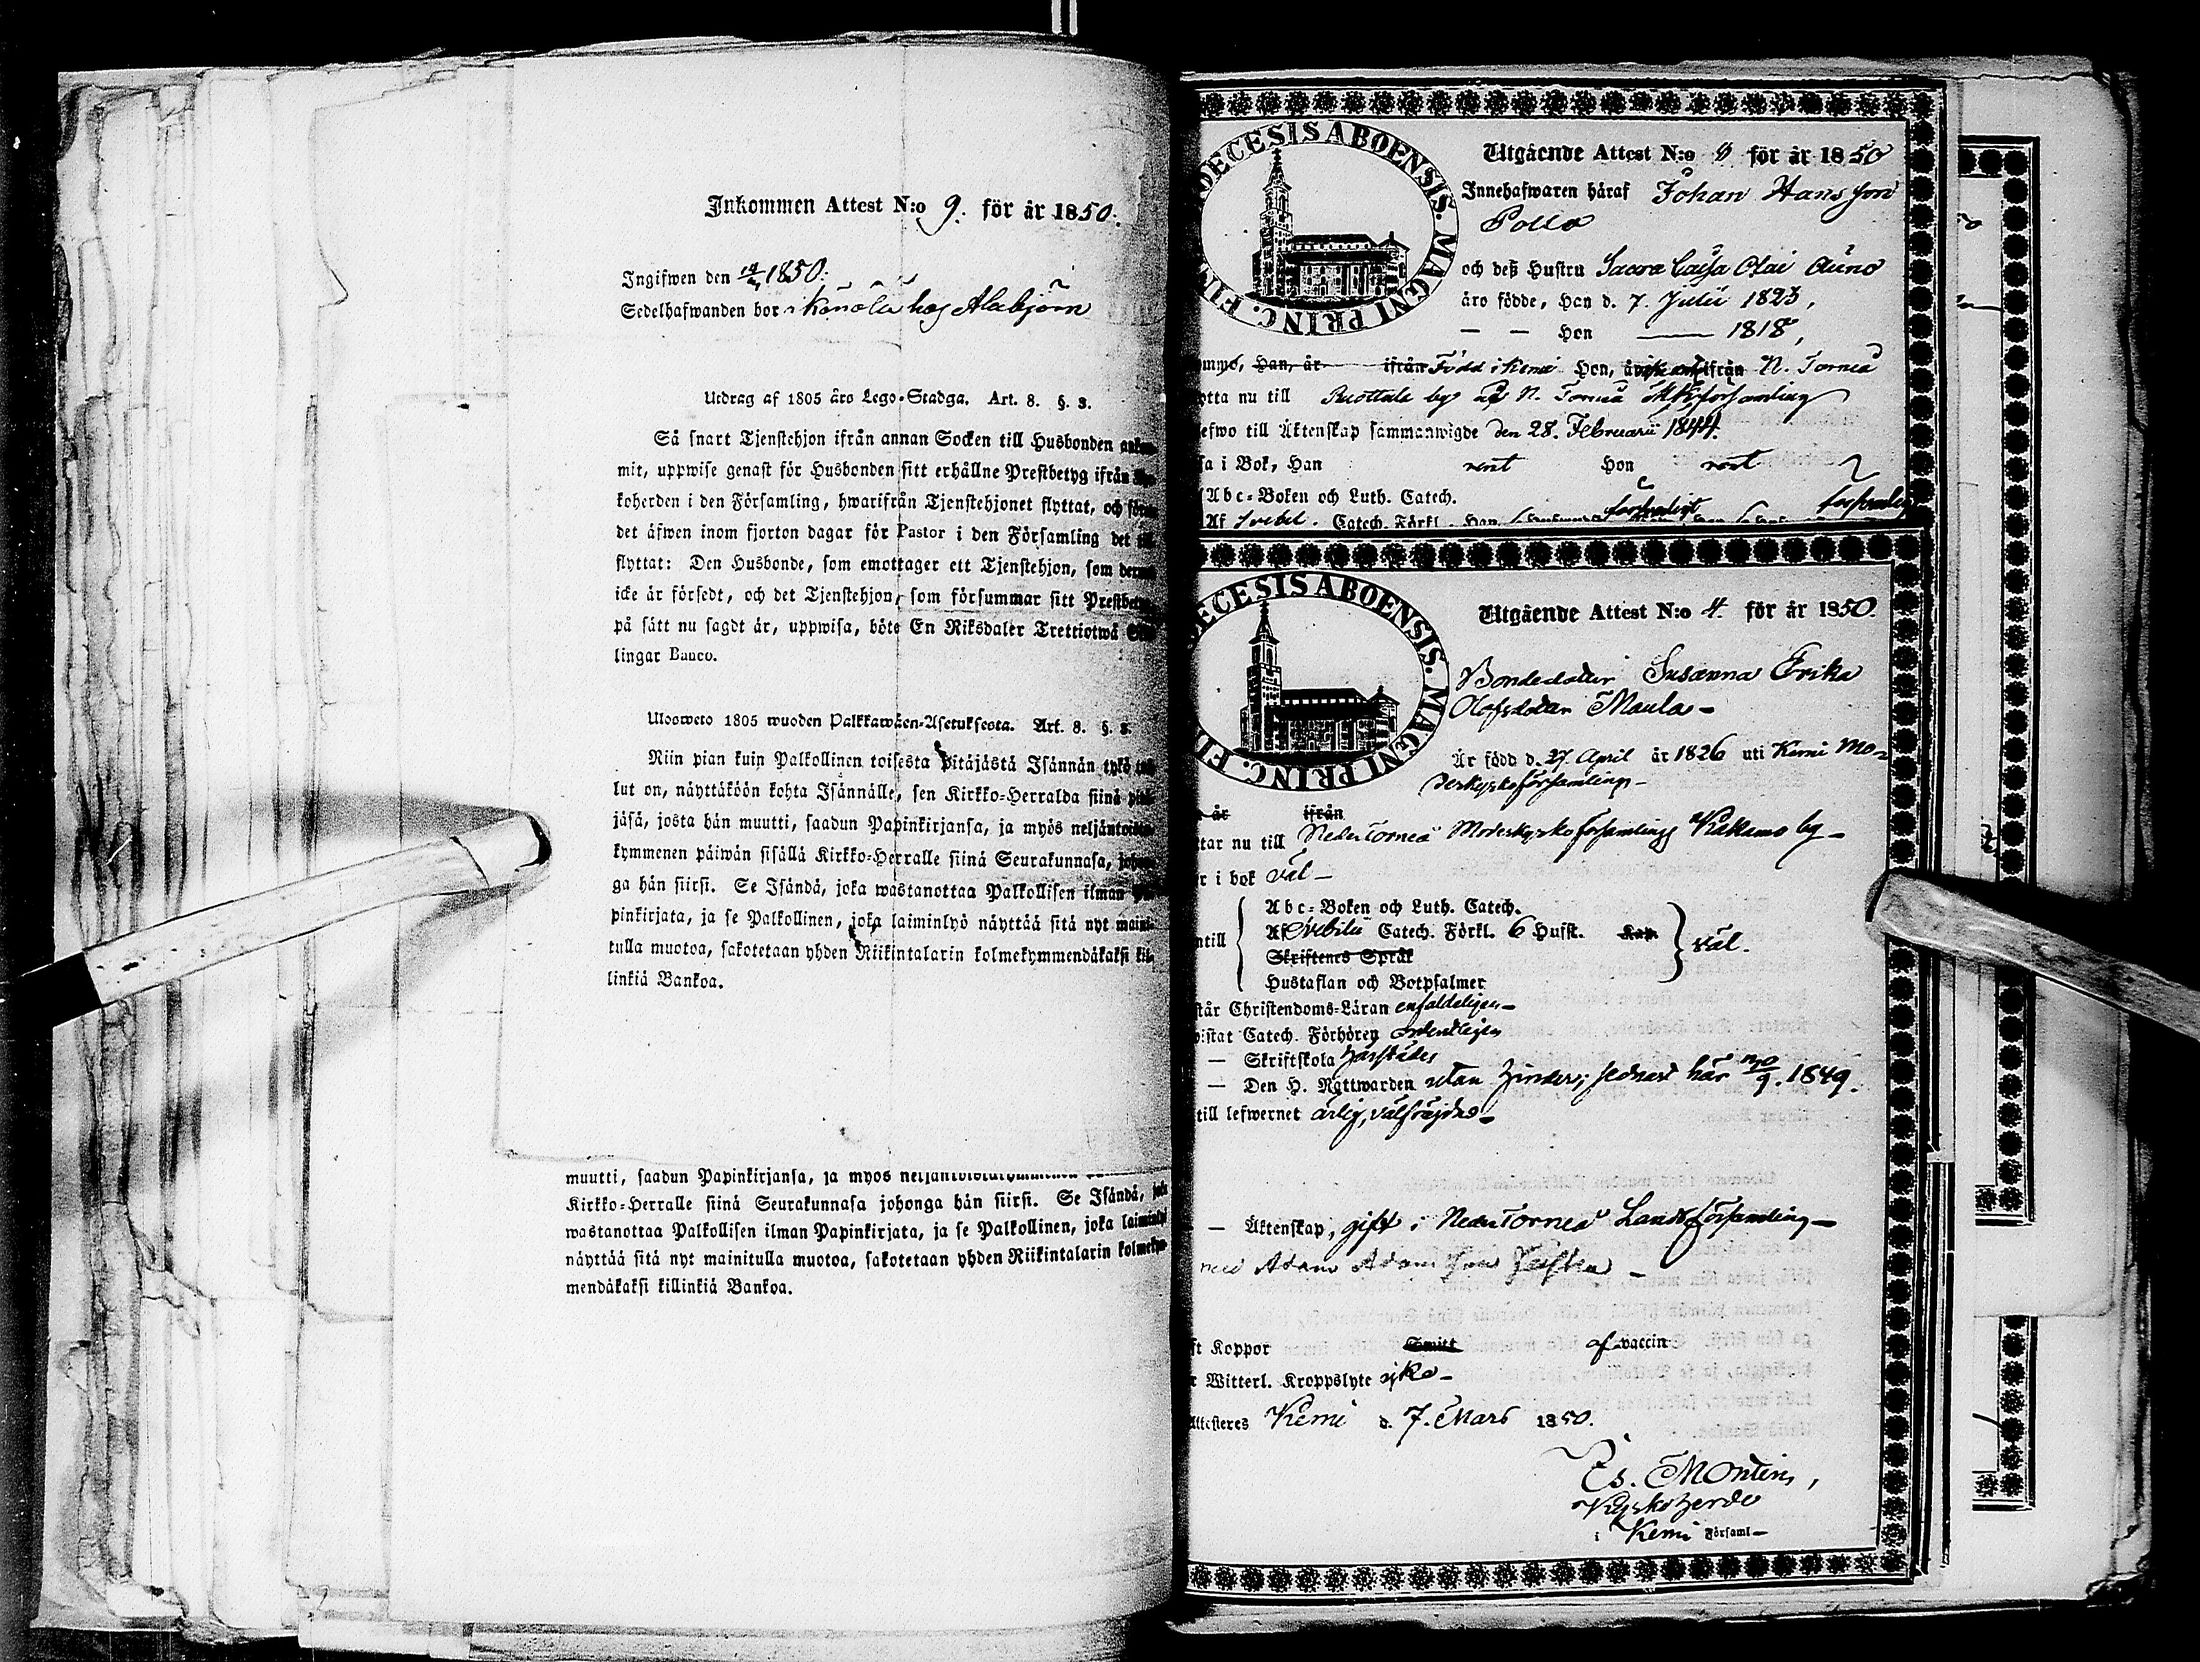 Inkommen Attest N:o 9. för år 1850.
Ingifwen den 1850.
Sedelhafwanden bor i hos Alabjörn
Utdrag af 1805 års Lego-Stadga. Art. 8. §. 3.
Så snart Tjenstehjon ifrån annan Socken till Husbonden
mit, uppwise genast för Husbonden sitt erhållne Prestbetyg ifrån
koherden i den Församling, hwarifrån Tjenstehjonet flyttat, och
det äfwen inom fjorton dagar för Pastor i den Församling det
flyttat: Den Husbonde, som emottager ett Tjenstehjon, som
icke är försedt, och det Tjenstehjon, som försummar sitt
på sätt nu sagdt är, uppwisa, böte En Riksdaler Trettiotwå
lingar Banco.
Ulosweto 1805 wuoden Palkkawäen-Asetuksesta. Art. 8. §. 3.
Niin pian kuin Palkollinen toisesta Pitäjästä Isännän tykö
lut on, näyttäköön kohta Isännälle, sen Kirkko-Herralda siinä
jäsä, josta hän muutti, saadun Papinkirjansa, ja myös
kymmenen päiwän sisällä Kirkko-Herralle siinä Seurakunnasa,
ga hän siirsi. Se Isändä, joka wastanottaa Palkollisen ilman
pinkirjata, ja se Palkollinen, joka laiminlyö näyttää sitä nyt maini-
tulla muotoa, sakotetaan yhden Riikintalarin kolmekymmendäkaksi kil-
linkiä Bankoa.
muutti, saadun Papinkirjansa, ja myös
Kirkko-Herralle siinä Seurakunnasa johonga hän siirsi. Se Isändä,
wastanottaa Palkollisen ilman Papinkirjata, ja se Palkollinen, joka
näyttää sitä nyt mainitulla muotoa, sakotetaan yhden Riikintalarin
mendäkaksi killinkiä Bankoa.
DECESIS ABOENSIS. MAGNI PRINC. FIN
Utgående Attest N:o 9 för år 1850
Innehafwaren häraf Johan Hansson
Polla
och deß Hustru Caisa Olai
äro födde, Han d. 7. Julii 1823,
— — Hon —— 1818,
Han, är ifrån Född i Kemi Hon, ifrån N. Torneå
nu till by N. Torneå
till Äktenskap sammanwigde den 28. Februarii 1844.
i Bok, Han rent Hon rent
Abc-Boken och Luth. Catech.
Af Svebel. Catech. Förkl. Han
ECESIS ABOENSIS. MAGNI PRINC. FI
Utgående Attest N:o 4. för år 1850.
Bondedotter Susanna Erika
Olofsdotter Maula –
Är född d. 27 April år 1826 uti Kemi Mo-
derkyrkoförsamling –
är ifrån
nu till Neder Torneå Moderkyrko församling Kakamo by –
i bok väl –
Abc-Boken och Luth. Catech.
Af Svebilii Catech. Förkl. 6 Hufst. Kap. väl.
Skriftenes Språk
Hustaflan och Botpsalmer
Christendoms-Läran enfaldeligen –
Catech. Förhören ordentligen
— Skriftskola härstädes
— Den H. Nattwarden utan hinder, sednast här 1849.
till lefwernet ärlig, välfräjdad –
— Äktenskap, gift i Neder Torneå Landsförsamling –
med Adam Adamsson
Koppor Smitt af vaccin
Witterl. Kroppslyte icke –
Kemi d. 7. Mars 1850.
Es. Montin,
Kyrkoherde
i Kemi Församl –